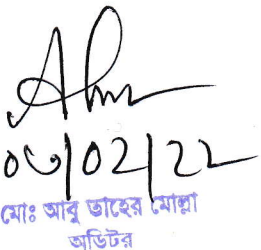 ০৩/০২/২২
মোঃ আবু তাহের মোল্লা
অডিটর